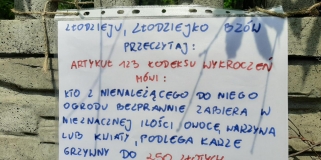 ZŁODZIEJU, ZŁODZIEJKO BZÓW
PRZECZYTAJ:
ARTYKUŁ 123 KODEKSU WYKROCZEŃ
MÓWI:
KTO Z NIENALEŻĄCEGO DO NIEGO
OGRODU BEZPRAWNIE ZABIERA W
NIEZNACZNEJ ILOŚCI OWOCE, WARZYWA
LUB KWIATY, PODLEGA KARZE
GRZYWNY DO 250 ZŁOTYCH